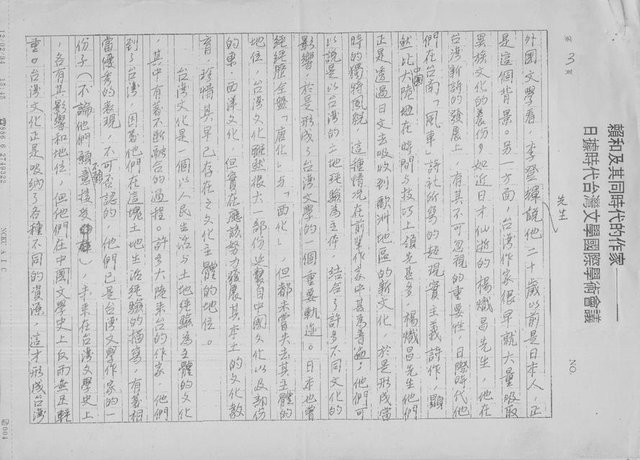 賴和及其同時代的作家——
日據時代台灣文學國際學術會議
NO.
3
先生
外國文學看。李登輝說他二十歲以前是日本人,正
是這個背景。另一方面,台灣作家很早就大量吸取
異族文化的養份,如近日才仙逝的楊熾昌先生,他在
台灣新詩的發展上,有其不可忽視的重要性,日據時代他
們在台南「風車」詩社所寫的超現實主義詩作,顯
然比中國大陸還在時間與技巧上領先甚多,楊熾昌先生他們
正是透過日文去吸收到歐洲地區的新文化,於是形成當
時的獨特風貌,這種情況在前輩作家中甚為普遍,他們可
以說是以台灣的土地經驗為主體,結合了許多不同文化的
影響,於是形成了台灣文學的一個重要軌道。日本也曾
經歷全盤「唐化」與「西化」,但都未嘗失去其主體的
地位,台灣文化雖然很大一部份近襲自中國文化以及部份
的東、西洋文化,但實在應該努力發展其本土的文化教
育,珍惜其早已存在之文化主體的地位。
台灣文化是一個以人民生活與土地經驗為主體的文化
,其中有著不斷融合的過程。許多大陸來台的作家,他們
到了台灣,因著他們在這塊土地生活經驗的描寫,有著相
當優秀的表現,不可否認的,他們已是台灣文學作家的一
份子(不論他們願意接受),未來在台灣文學史上
,各有其影響和地位,但他們在中國文學史上反而無足輕
重。台灣文化正是吸納了各種不同的資源,這才形成台灣